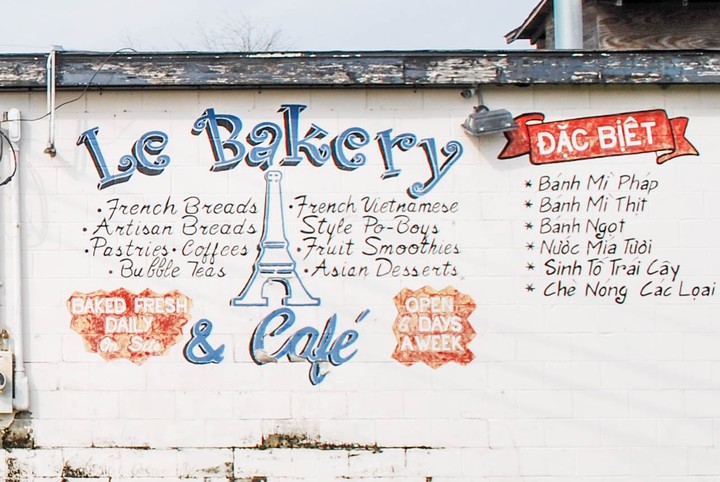 Le Bakery
• French Breads
• Artisan Breads
Pastries • Coffees
• Bubble Teas
• French Vietnamese
Style Po-Boys
• Fruit Smoothies
• Asian Desserts
BAKED FRESH
DAILY
On Site
& Café
OPEN
6 DAYS
A WEEK
ĐẶC BIỆT
* Bánh Mì Pháp
* Bánh Mì Thịt
* Bánh Ngọt
* Nước Mía Tươi
* Sinh Tố Trái Cây
* Chè Nóng Các Loại